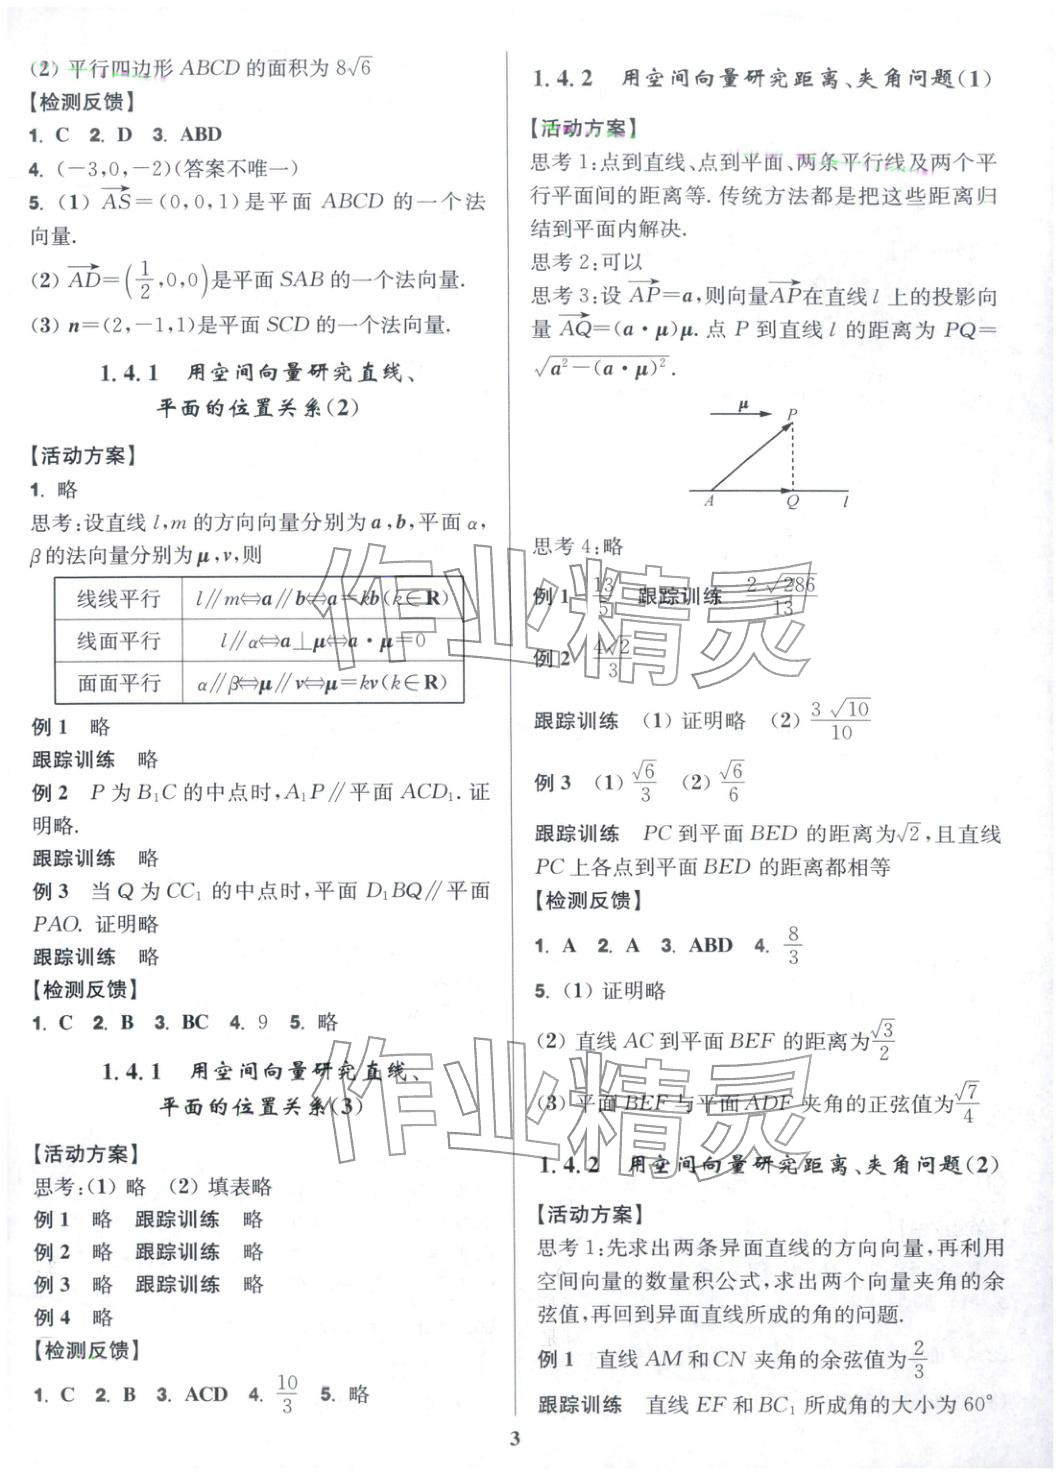 (2) 平行四边形 ABCD 的面积为 8√6
【检测反馈】
1. C 2. D 3. ABD
4. (-3,0,-2)(答案不唯一)
5. (1) AS→=(0,0,1)是平面 ABCD 的一个法
向量.
(2) AD→=(1/2,0,0)是平面 SAB 的一个法向量.
(3) n=(2,-1,1)是平面 SCD 的一个法向量.
1.4.1 用空间向量研究直线、
平面的位置关系(2)
【活动方案】
1. 略
思考:设直线 l,m 的方向向量分别为 a,b,平面 α,
β的法向量分别为 μ,v,则
线线平行 l∥m⇔a∥b⇔a=kb(k∈R)
线面平行 l∥α⇔a⊥μ⇔a·μ=0
面面平行 α∥β⇔μ∥v⇔μ=kv(k∈R)
例 1 略
跟踪训练 略
例 2 P 为 B₁C 的中点时,A₁P∥平面 ACD₁.证
明略.
跟踪训练 略
例 3 当 Q 为 CC₁ 的中点时,平面 D₁BQ∥平面
PAO. 证明略
跟踪训练 略
【检测反馈】
1. C 2. B 3. BC 4. 9 5. 略
1.4.1 用空间向量研究直线、
平面的位置关系(3)
【活动方案】
思考:(1) 略 (2) 填表略
例 1 略 跟踪训练 略
例 2 略 跟踪训练 略
例 3 略 跟踪训练 略
例 4 略
【检测反馈】
1. C 2. B 3. ACD 4. 10/3 5. 略
1.4.2 用空间向量研究距离、夹角问题(1)
【活动方案】
思考 1:点到直线、点到平面、两条平行线及两个平
行平面间的距离等. 传统方法都是把这些距离归
结到平面内解决.
思考 2:可以
思考 3:设 AP→=a,则向量AP→在直线 l 上的投影向
量 AQ→=(a·μ)μ. 点 P 到直线 l 的距离为 PQ=
√(a²-(a·μ)²).
μ
P
A Q l
思考 4:略
例 1 13/5 跟踪训练 2√286/13
例 2 4√2/3
跟踪训练 (1) 证明略 (2) 3√10/10
例 3 (1) √6/3 (2) √6/6
跟踪训练 PC 到平面 BED 的距离为√2,且直线
PC 上各点到平面 BED 的距离都相等
【检测反馈】
1. A 2. A 3. ABD 4. 8/3
5. (1) 证明略
(2) 直线 AC 到平面 BEF 的距离为√3/2
(3) 平面 BEF 与平面 ADF 夹角的正弦值为√7/4
1.4.2 用空间向量研究距离、夹角问题(2)
【活动方案】
思考 1:先求出两条异面直线的方向向量,再利用
空间向量的数量积公式,求出两个向量夹角的余
弦值,再回到异面直线所成的角的问题.
例 1 直线 AM 和 CN 夹角的余弦值为2/3
跟踪训练 直线 EF 和 BC₁ 所成角的大小为 60°
3
作业精灵
作业精灵